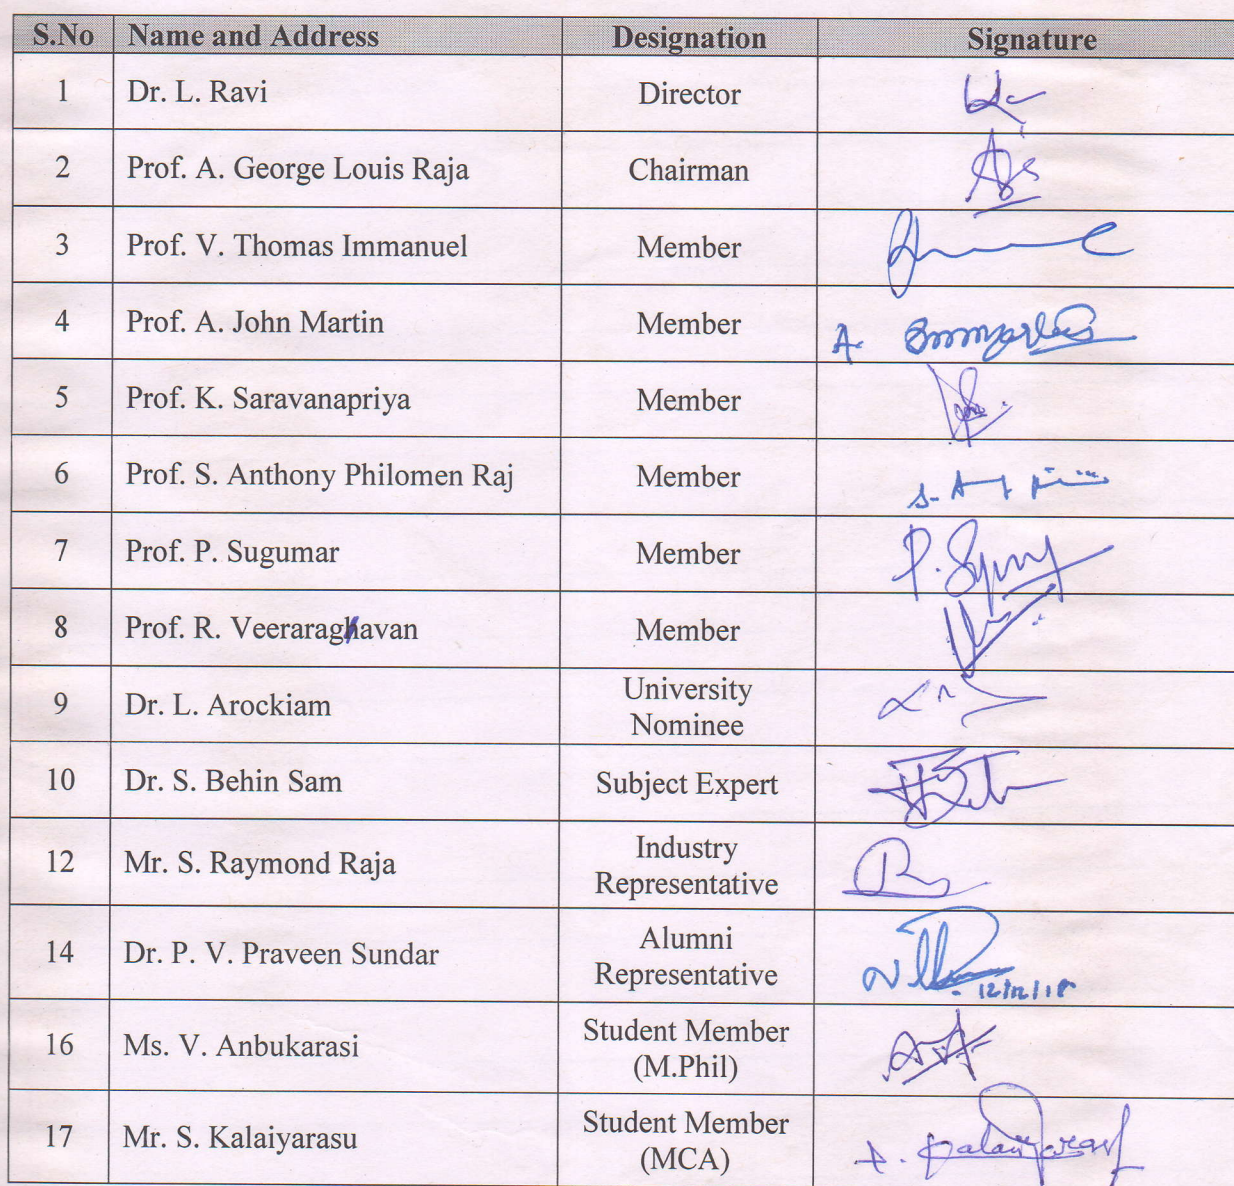 S.No Name and Address Designation Signature
1 Dr. L. Ravi Director
2 Prof. A. George Louis Raja Chairman
3 Prof. V. Thomas Immanuel Member
4 Prof. A. John Martin Member A.
5 Prof. K. Saravanapriya Member
6 Prof. S. Anthony Philomen Raj Member S.
7 Prof. P. Sugumar Member P.
8 Prof. R. Veeraraghavan Member
9 Dr. L. Arockiam University
Nominee
10 Dr. S. Behin Sam Subject Expert
12 Mr. S. Raymond Raja Industry
Representative
14 Dr. P. V. Praveen Sundar Alumni
Representative
12/12/18
16 Ms. V. Anbukarasi Student Member
(M.Phil)
17 Mr. S. Kalaiyarasu Student Member
(MCA)